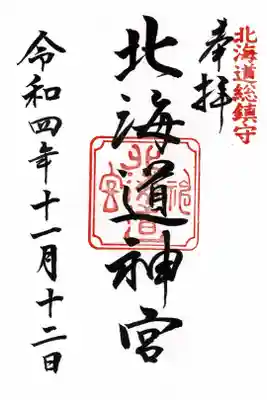 北海道総鎮守
奉拝
北海道神宮
令和四年十一月十二日